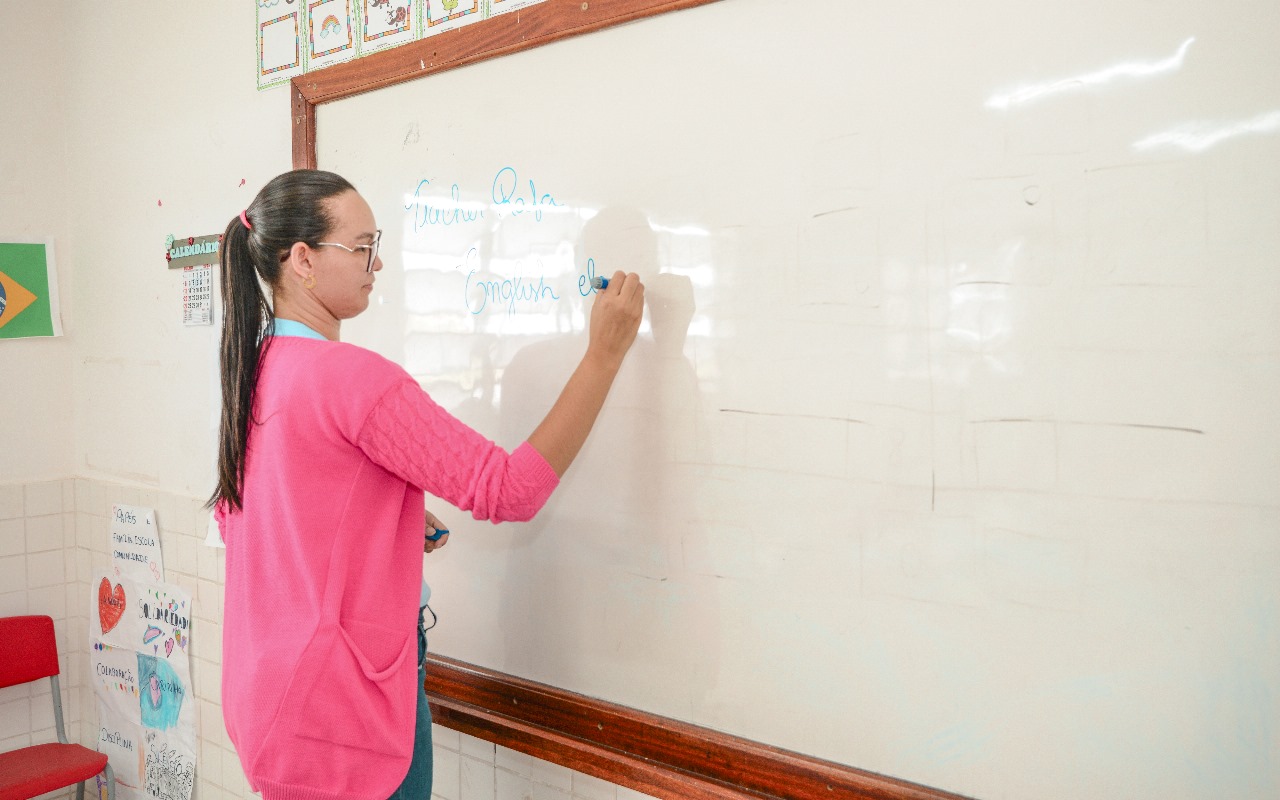 Teacher Rafa
English cl
CALENDÁRIO
PAPÉIS
FAMÍLIA ESCOLA
COMUNIDADE
SOLIDARIEDADE
COLABORAÇÃO
DISCIPLINA